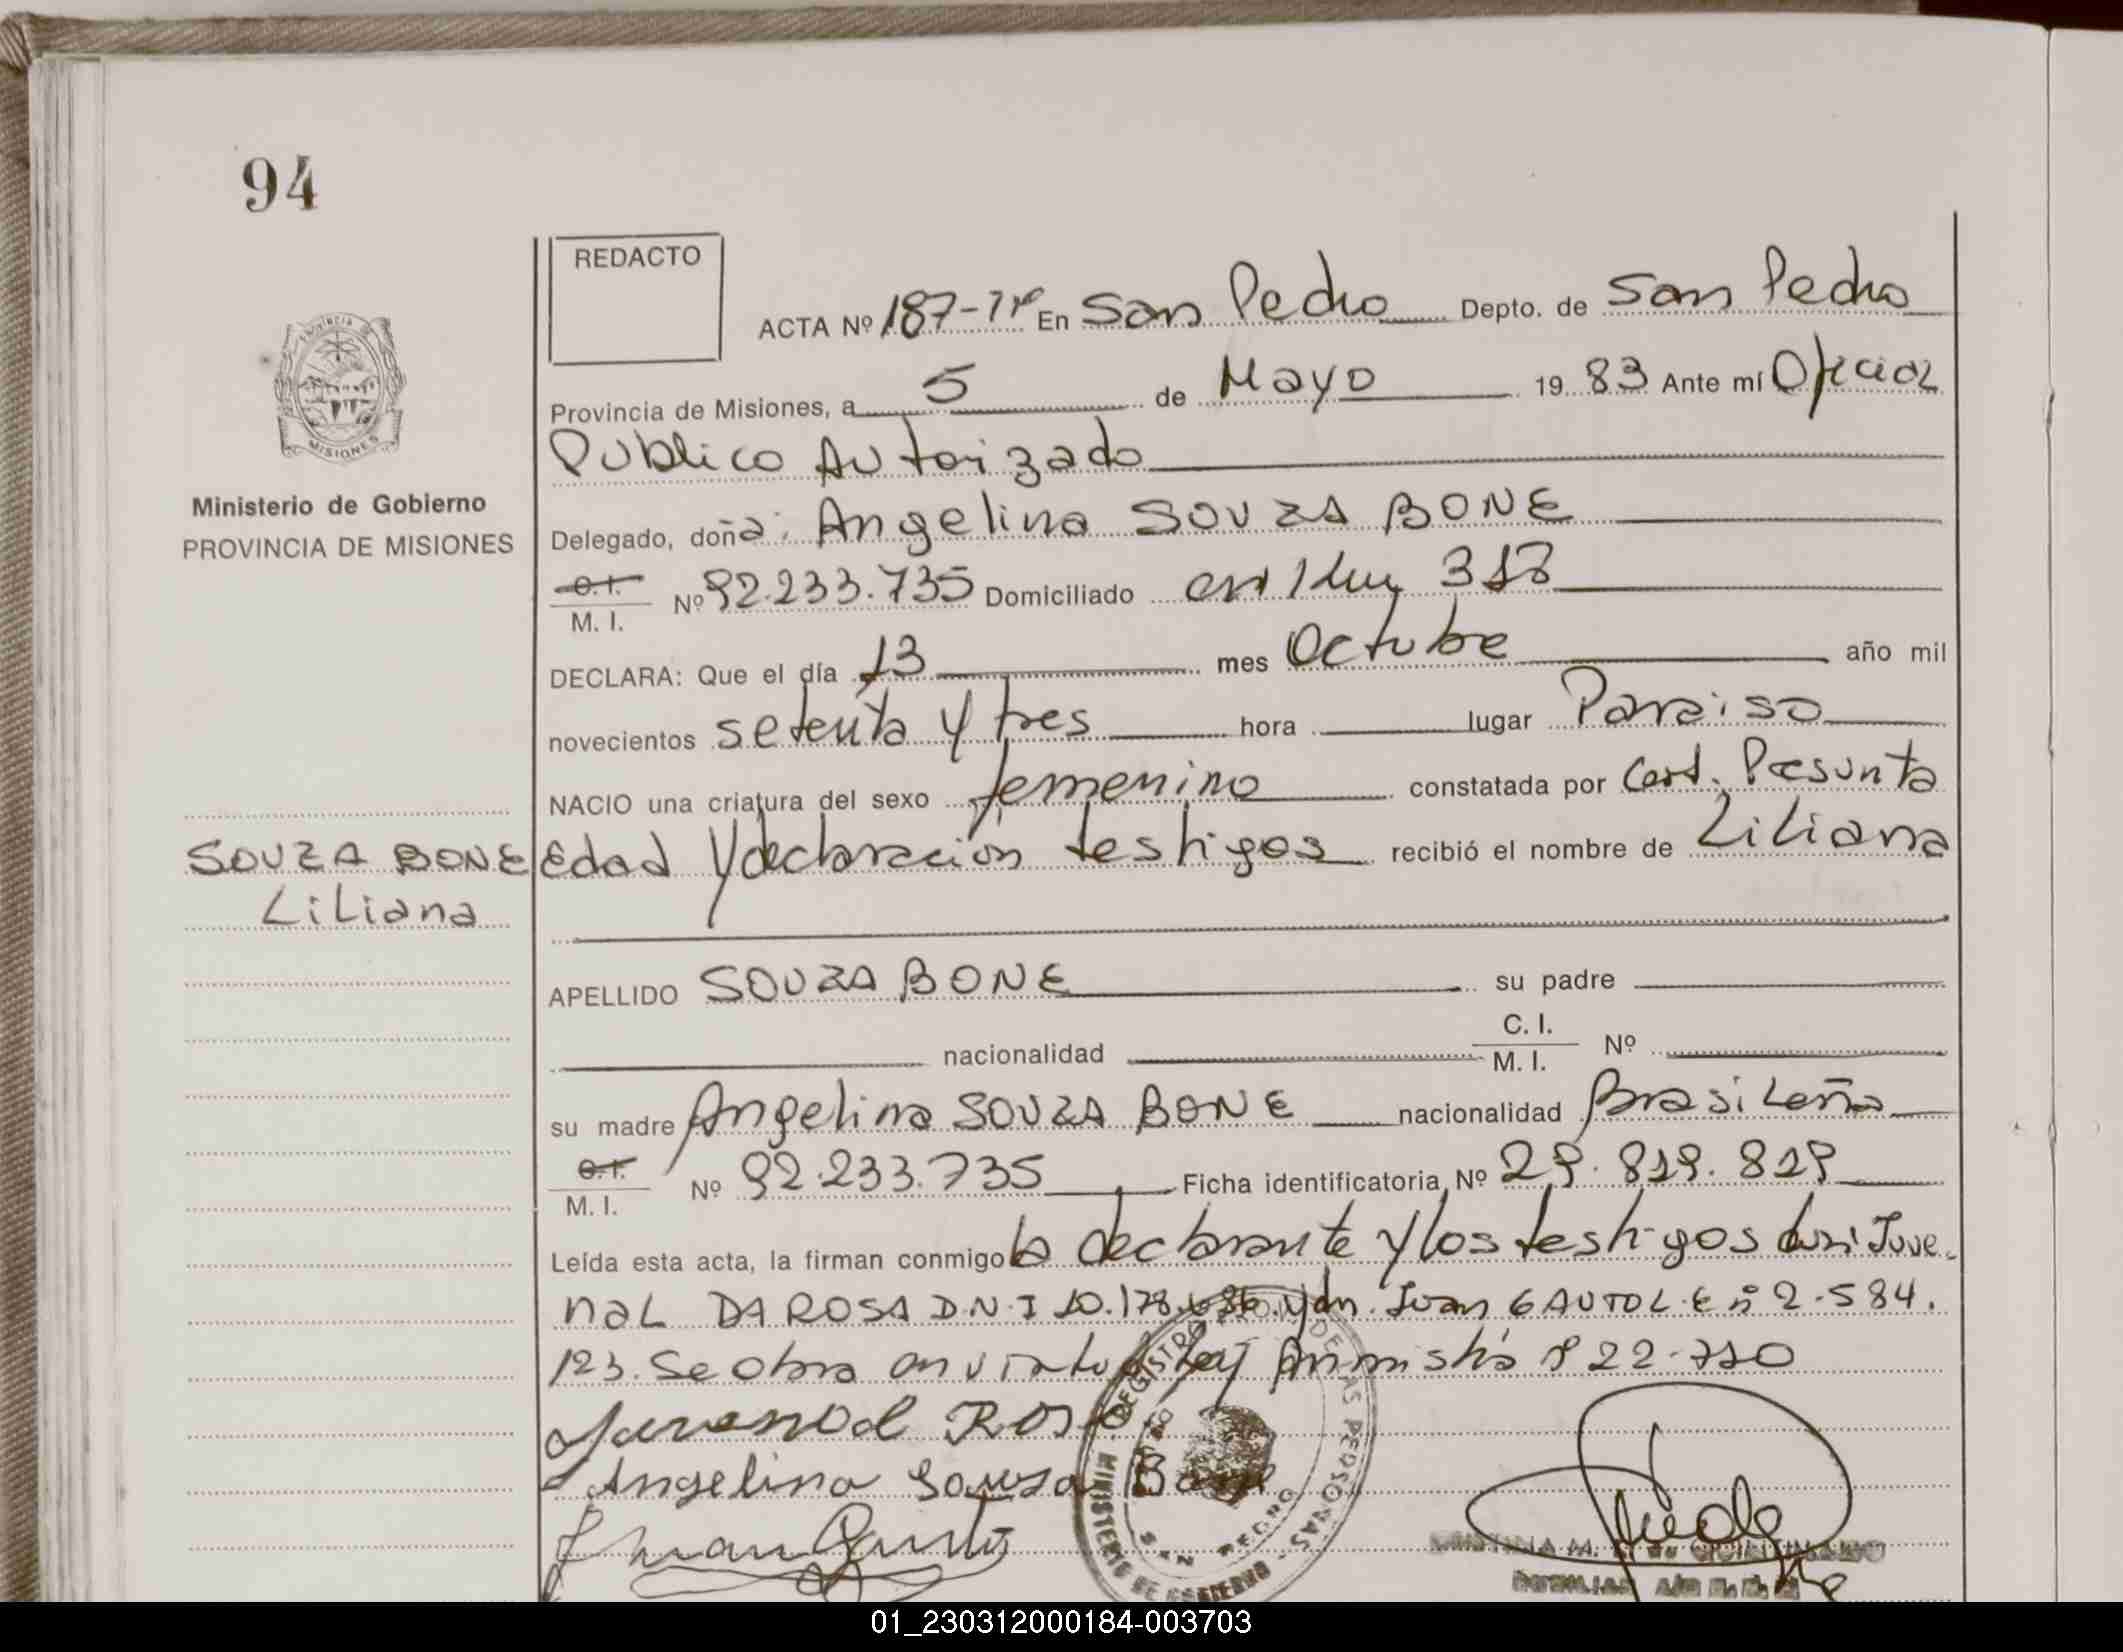 94
REDACTO
ACTA Nº 187-Tº En San Pedro Depto. de San Pedro
Provincia de Misiones, a 5 de Mayo 1983 Ante mí Oficial
Publico Autorizado
PROVINCIA DE
MISIONES
Ministerio de Gobierno
PROVINCIA DE MISIONES
Delegado, doña: Angelina SOUZA BONE
C. I.
M. I. Nº 92.233.735 Domiciliado en Km 318
DECLARA: Que el día 13 mes Octubre año mil
novecientos setenta y tres hora lugar Paraiso
NACIO una criatura del sexo femenino constatada por Cert. Presunta
SOUZA BONE
Liliana
Edad y declaración testigos recibió el nombre de Liliana
APELLIDO SOUZA BONE su padre
nacionalidad C. I. M. I. Nº
su madre Angelina SOUZA BONE nacionalidad Brasileña
C. I.
M. I. Nº 92.233.735 Ficha identificatoria Nº 29.819.819
Leída esta acta, la firman conmigo la declarante y los testigos don: Juve-
nal DA ROSA D.N.I 10.178. y dn. Juan GAUTO L.E nº 2.584.
123. Se obra en virtud Ley Amnistía nº 22.710
Juvenal Rosa
Angelina Souza Bone
Juan Gauto
REGISTRO DE LAS PERSONAS
MINISTERIO DE GOBIERNO
SAN PEDRO
01_230312000184-003703